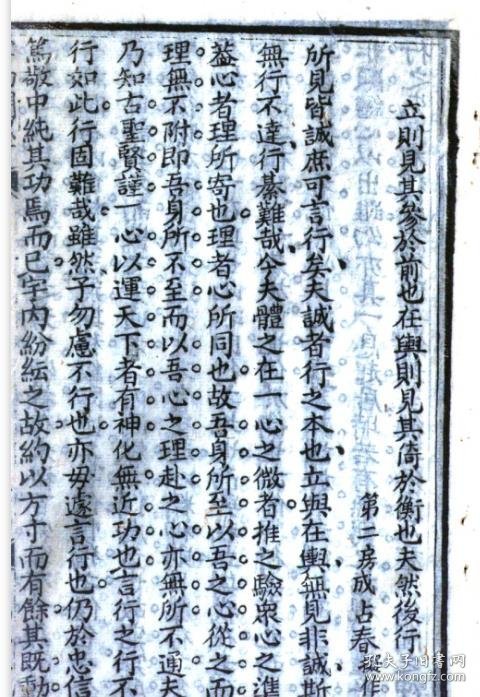 立則見其參於前也在輿則見其倚於衡也夫然後行
第二房成占春
所見皆誠庶可言行矣夫誠者行之本也立與在輿無見非誠斯
無行不達行綦難哉今夫體之在一心之微者推之驗衆心之准
蓋心者理所寄也理者心所同也故吾身所至以吾之心從之而
理無不附即吾身所不至而以吾心之理赴之心亦無所不通
乃知古聖賢謹一心以運天下者有神化無近功也言行之行
行如此行固難哉雖然子勿慮不行也亦毋遽言行也仍於忠信
篤敬中純其功焉而已宇內紛紜之故約以方寸而有餘其既動
孔夫子旧书网